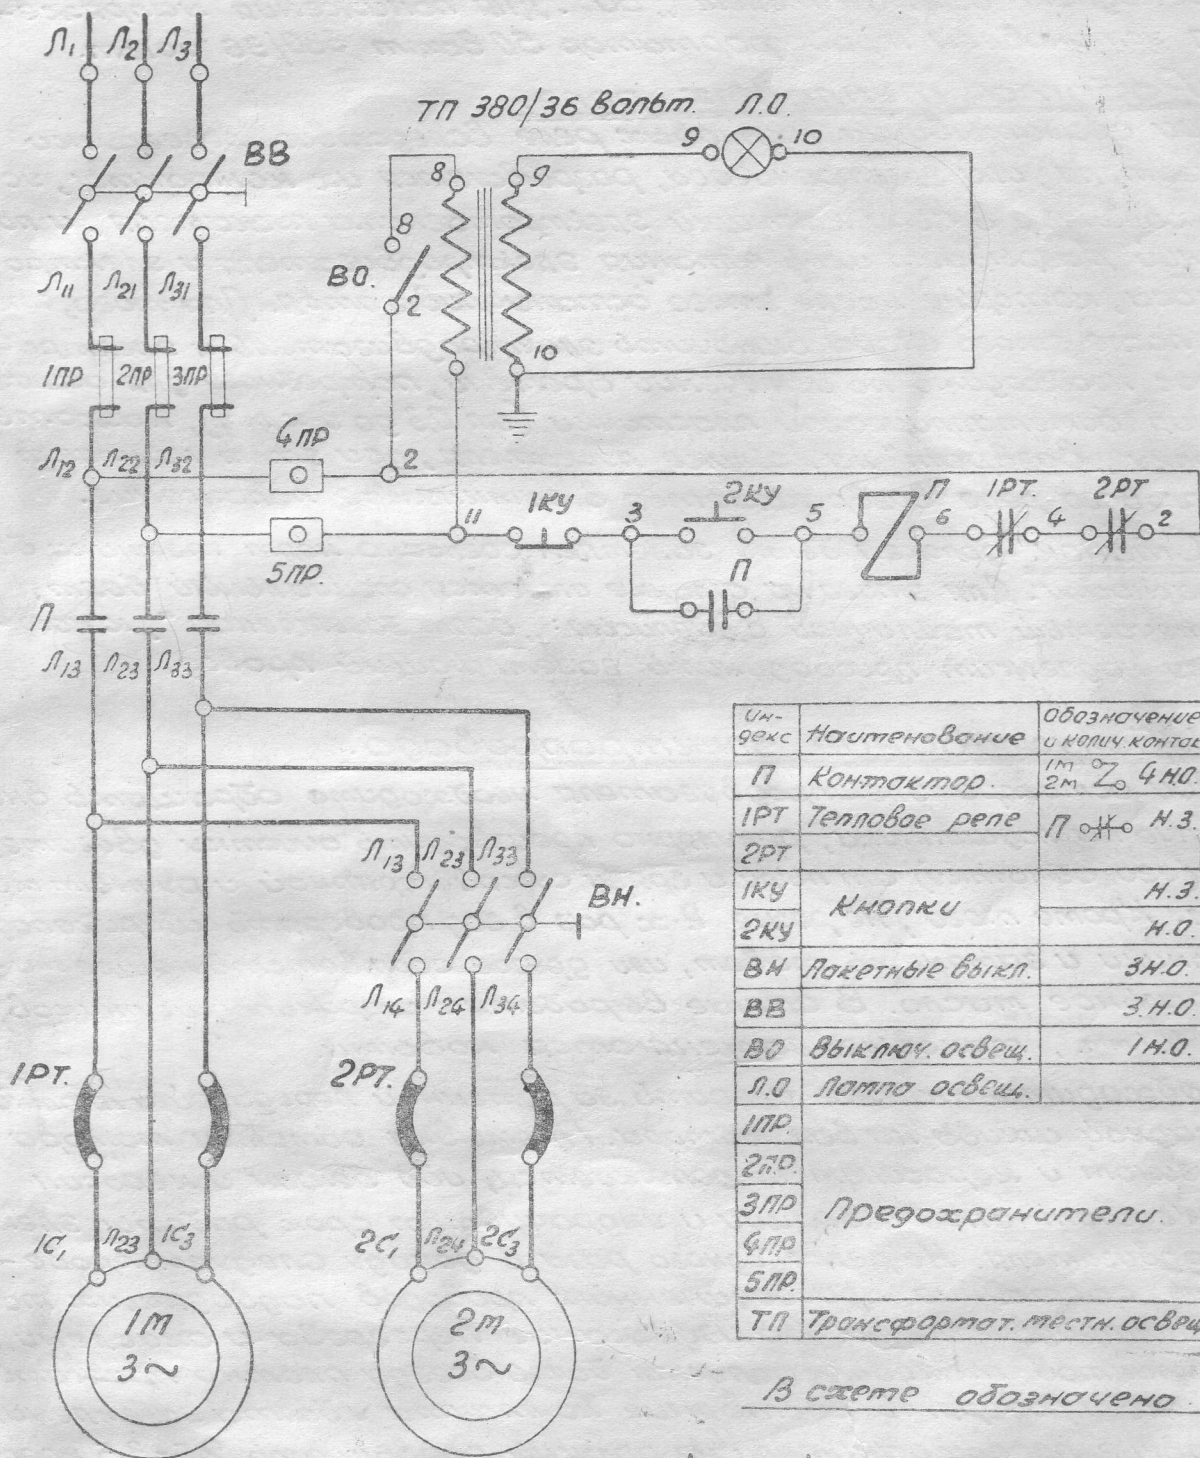 Л1 Л2 Л3
ВВ
ТП 380/36 Вольт. Л.О.
9 10
8 9
8
ВО.
2
10
Л11 Л21 Л31
1ПР 2ПР 3ПР
4ПР
Л12 Л22 Л32
2
1КУ 2КУ П 1РТ. 2РТ
11 3 5 6 4 2
5ПР.
П
П
Л13 Л23 Л33
Л13 Л23 Л33
ВН.
Л14 Л24 Л34
1РТ. 2РТ.
1С1 Л23 1С3 2С1 Л24 2С3
1М 2М
3~ 3~
Ин-
декс Наименование Обозначение
и колич. контак
П Контактор. 1М 2М 4 Н.О.
1РТ Тепловое реле П Н.З.
2РТ
1КУ Кнопки Н.З.
2КУ Н.О.
ВН Пакетные выкл. 3Н.О.
ВВ 3.Н.О.
ВО Выключ. освещ. 1Н.О.
Л.О Лампа освещ.
1ПР.
2ПР.
3ПР Предохранители.
4ПР
5ПР.
ТП Трансформат. местн. освещ
В схеме обозначено